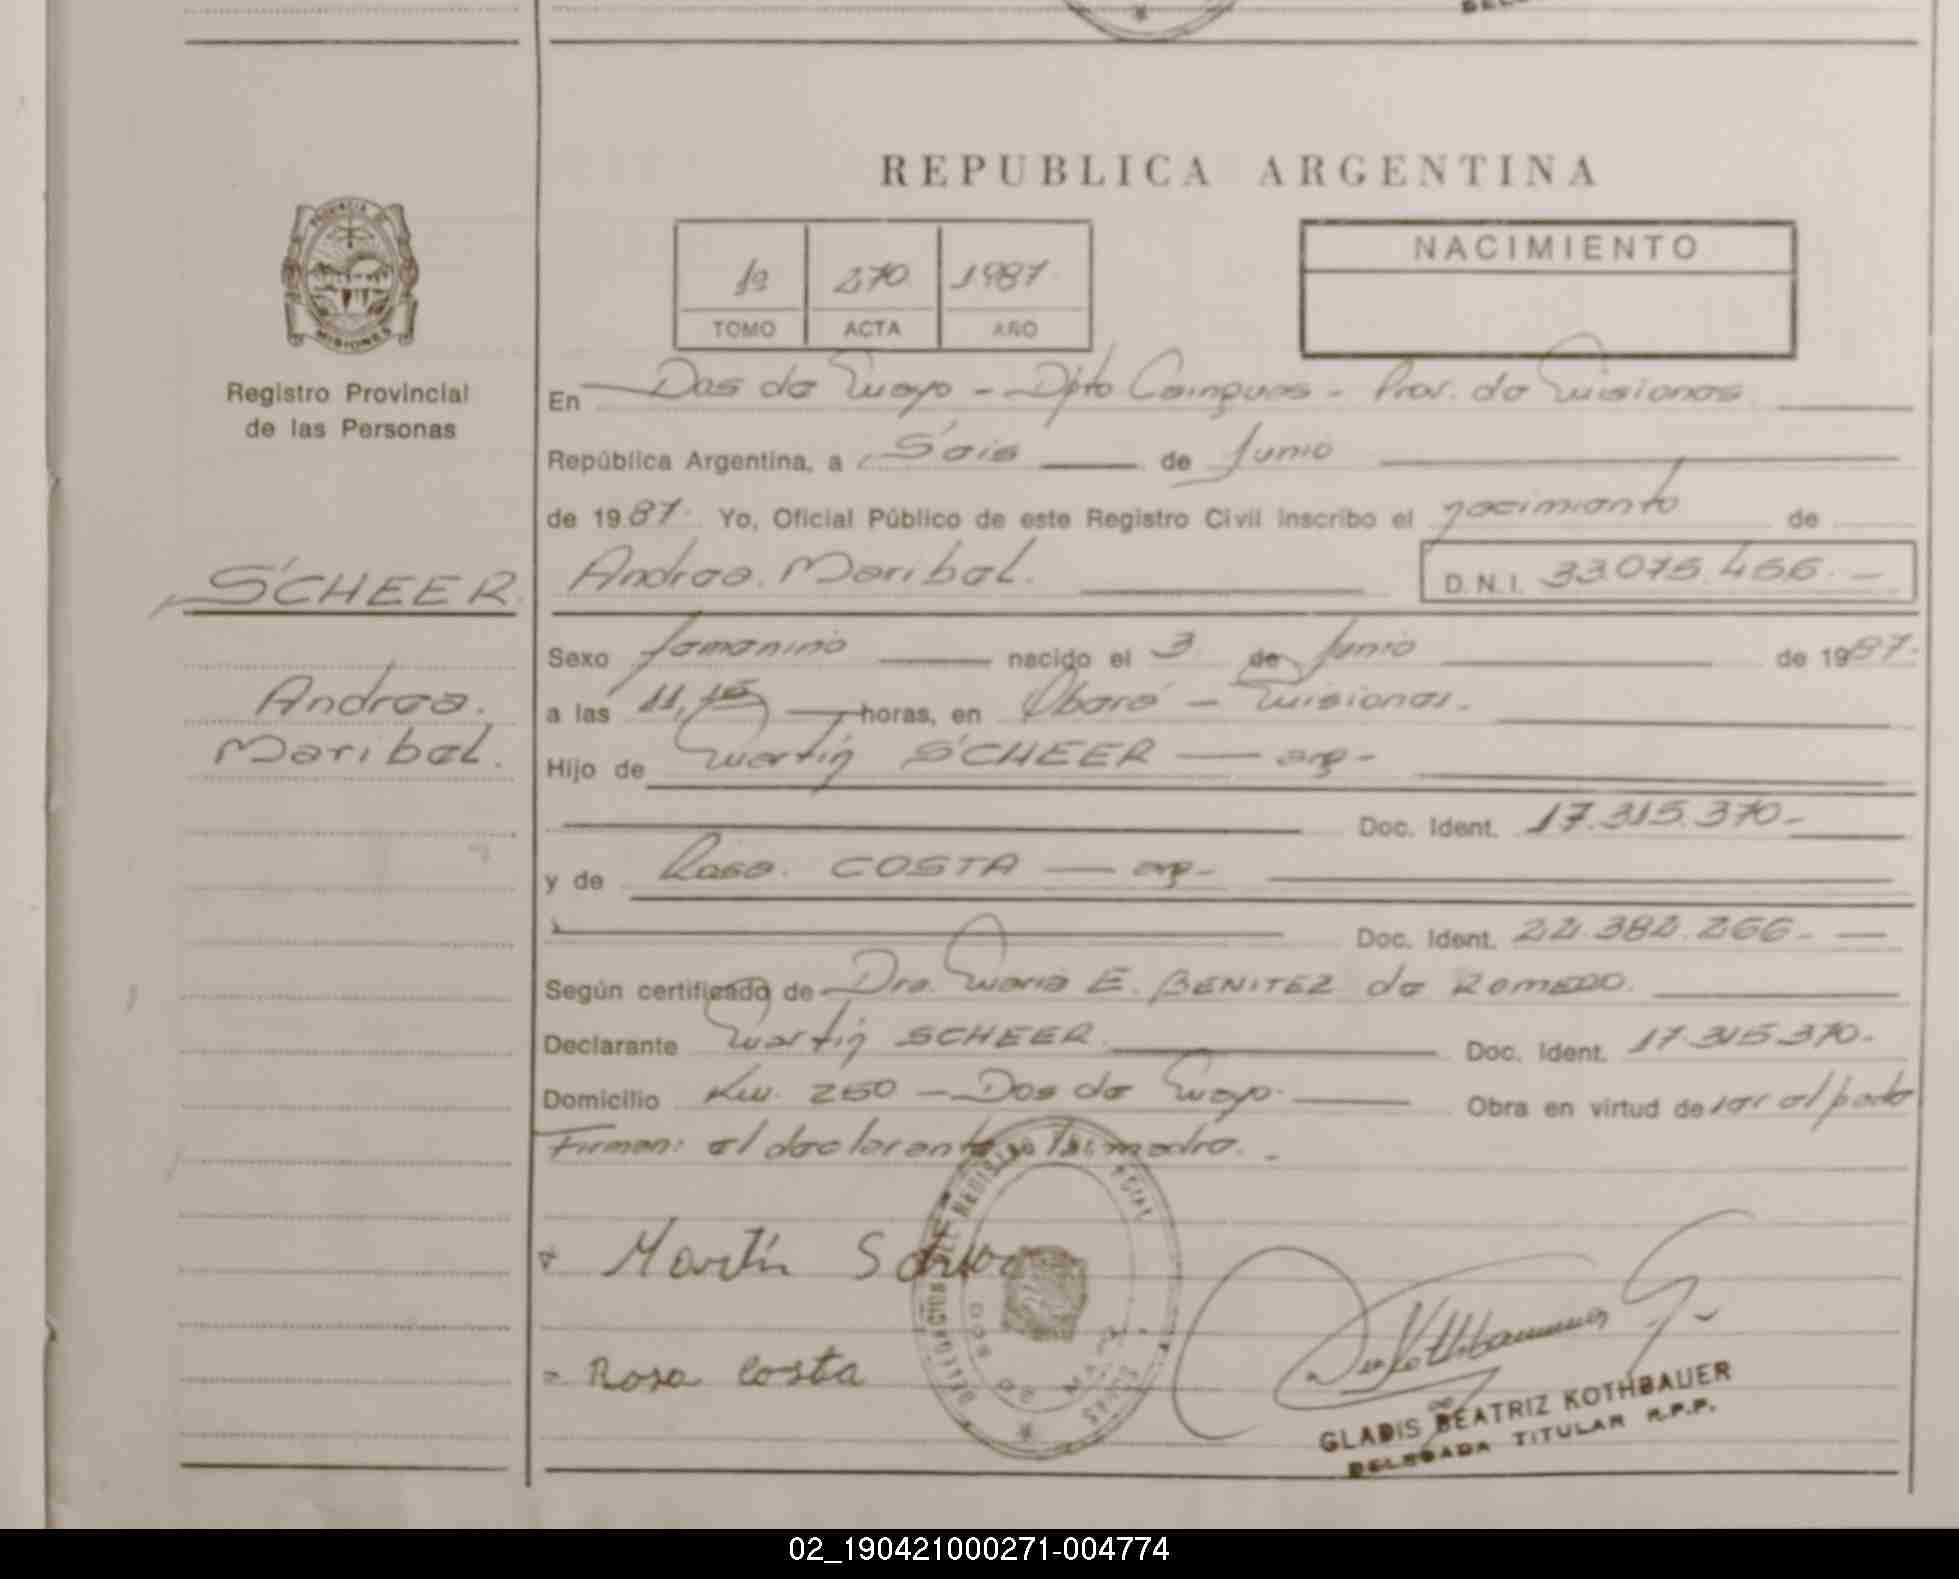 REPUBLICA ARGENTINA
PROVINCIA DE
MISIONES
Registro Provincial
de las Personas
1º 270 1987
TOMO ACTA AÑO
NACIMIENTO
En Dos de Mayo - Dpto Cainguas - Prov. de Misiones
República Argentina, a Seis de Junio
de 1987. Yo, Oficial Público de este Registro Civil inscribo el nacimiento de
SCHEER
Andrea Maribel. D.N.I. 33.075.456.-
Andrea.
Maribel.
Sexo femenino nacido el 3 de Junio de 1987.
a las 11,15 horas, en Oberá - Misiones.
Hijo de Martín SCHEER - arg-
Doc. Ident. 17.315.370-
y de Rosa COSTA - arg-
Doc. Ident. 22.382.266-
Según certificado de Dra. Maria E. BENITEZ de ROMERO.
Declarante Martín SCHEER Doc. Ident. 17.315.370-
Domicilio Km. 250 - Dos de Mayo. Obra en virtud de ser el padre
Firman: el declarante y la madre.-
DELEGACION DEL REGISTRO
DOS DE MAYO
Martín Scheer
Rosa Costa
GLADIS BEATRIZ KOTHBAUER
DELEGADA TITULAR R.P.P.
02_190421000271-004774